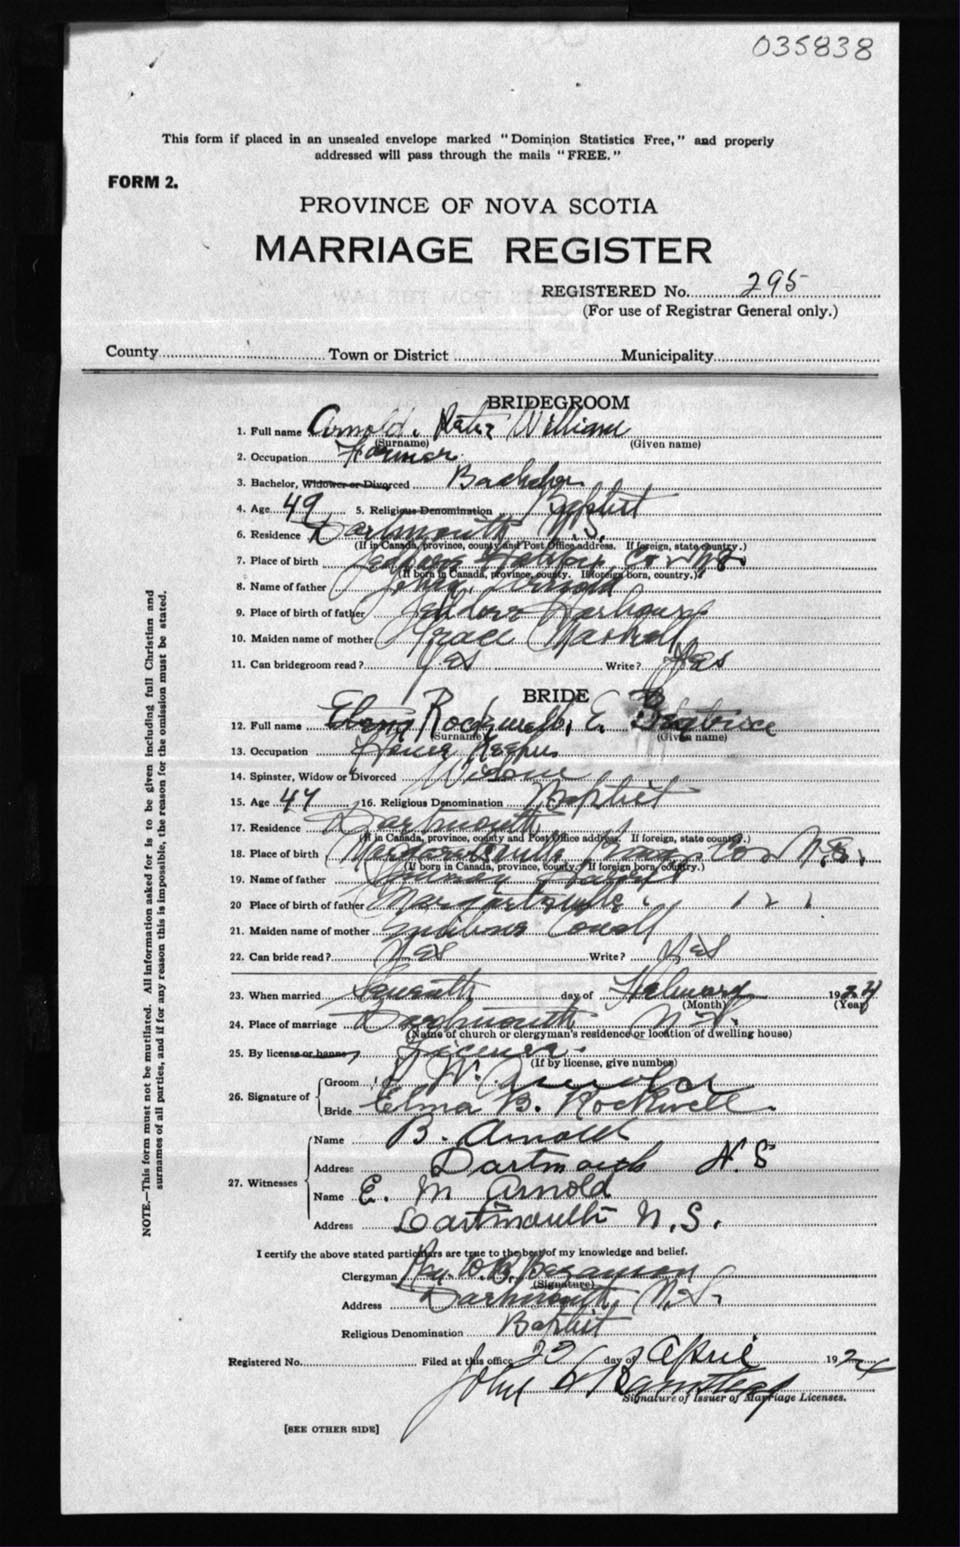 035838
This form if placed in an unsealed envelope marked "Dominion Statistics Free," and properly
addressed will pass through the mails "FREE."
FORM 2.
PROVINCE OF NOVA SCOTIA
MARRIAGE REGISTER
REGISTERED No. 295
(For use of Registrar General only.)
County Town or District Municipality
BRIDEGROOM
1. Full name Arnold, William
(Surname) (Given name)
2. Occupation Farmer
3. Bachelor, Widower or Divorced Bachelor
4. Age 49 5. Religious Denomination Baptist
6. Residence Dartmouth N.S.
(If in Canada, province, county and Post Office address. If foreign, state country.)
7. Place of birth
(If born in Canada, province, county. If foreign born, country.)
8. Name of father Arnold
9. Place of birth of father Harbour
10. Maiden name of mother Grace
11. Can bridegroom read? Yes Write? Yes
BRIDE
12. Full name Rockwell, E. Beatrice
(Surname) (Given name)
13. Occupation House Keeper
14. Spinster, Widow or Divorced Widow
15. Age 47 16. Religious Denomination Baptist
17. Residence Dartmouth
(If in Canada, province, county and Post Office address. If foreign, state country.)
18. Place of birth Kings Co N.S.
(If born in Canada, province, county. If foreign born, country.)
19. Name of father
20 Place of birth of father
21. Maiden name of mother
22. Can bride read? Yes Write? Yes
23. When married Seventh day of February 1924
(Month) (Year)
24. Place of marriage Dartmouth N.S.
(Name of church or clergyman's residence or location of dwelling house)
25. By license or banns License
(If by license, give number)
26. Signature of
Groom W. Arnold
Bride Elma B. Rockwell.
27. Witnesses
Name B. Arnold
Address Dartmouth N.S
Name E. M Arnold
Address Dartmouth N.S.
I certify the above stated particulars are true to the best of my knowledge and belief.
Clergyman Rev. Bezanson
(Signature)
Address Dartmouth, N.S.
Religious Denomination Baptist
Registered No. Filed at this office 22 day of April 1924
John
Signature of Issuer of Marriage Licenses.
[SEE OTHER SIDE]
NOTE.—This form must not be mutilated. All information asked for is to be given including full Christian and
surnames of all parties, and if for any reason this is impossible, the reason for the omission must be stated.